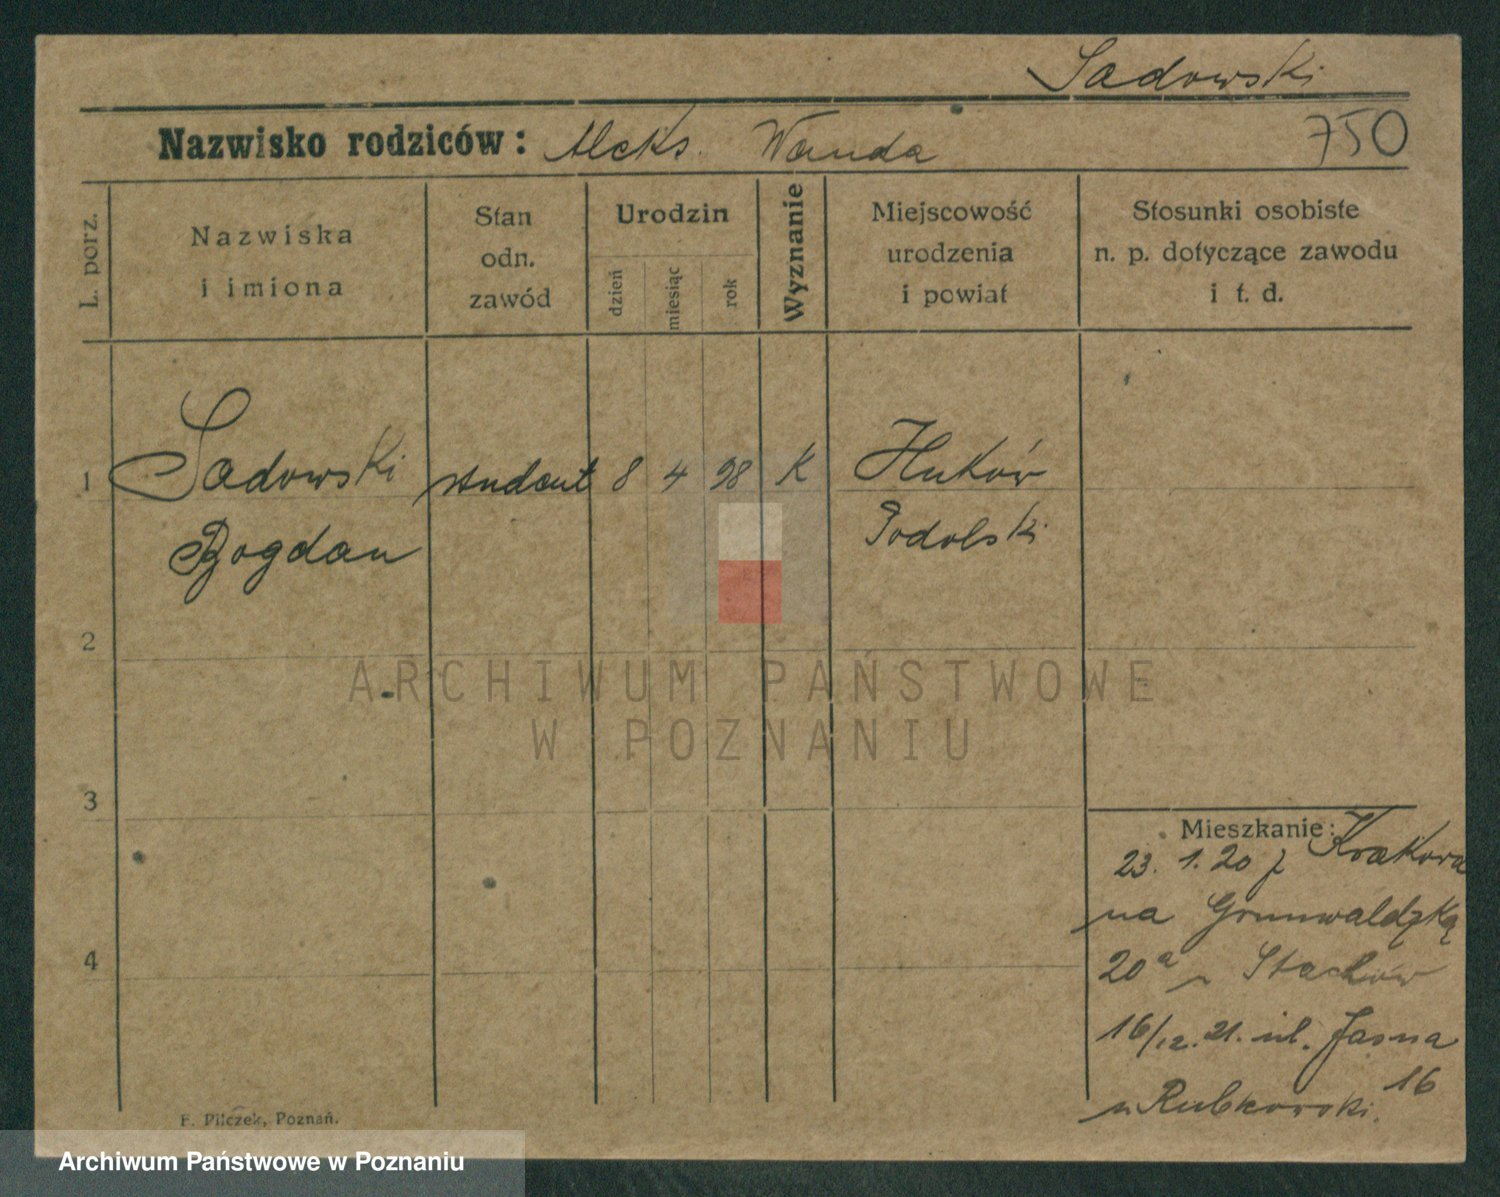 Sadowski
Nazwisko rodziców: Aleks. Wanda
750
L. porz.
Nazwiska
i imiona
Stan
odn.
zawód
Urodzin
dzień
miesiąc
rok
Wyznanie
Miejscowość
urodzenia
i powiat
Stosunki osobiste
n. p. dotyczące zawodu
i t. d.
1 Sadowski student 8 4 98 K Huków
Bogdan Podolski
2
3
4
ARCHIWUM PAŃSTWOWE
W POZNANIU
Mieszkanie:
23. 1. 20 z Krakowa
na Grunwaldzką
20a u Stachów
16/12. 21. ul. Jasna
16
u
F. Pilczek, Poznań.
Archiwum Państwowe w Poznaniu